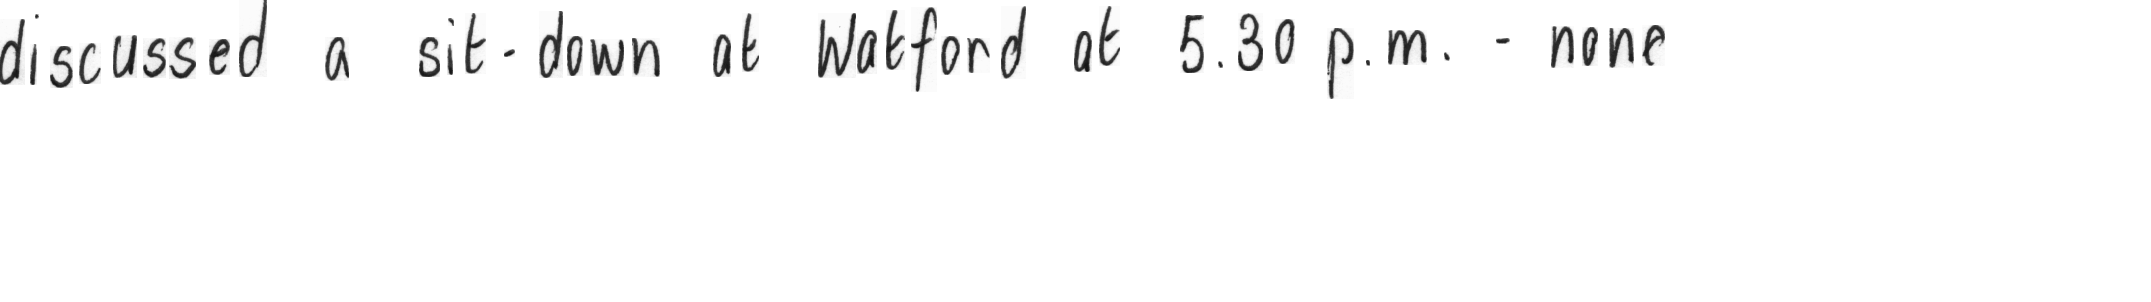 discussed a sit-down at Watford at 5.30 p.m. - none